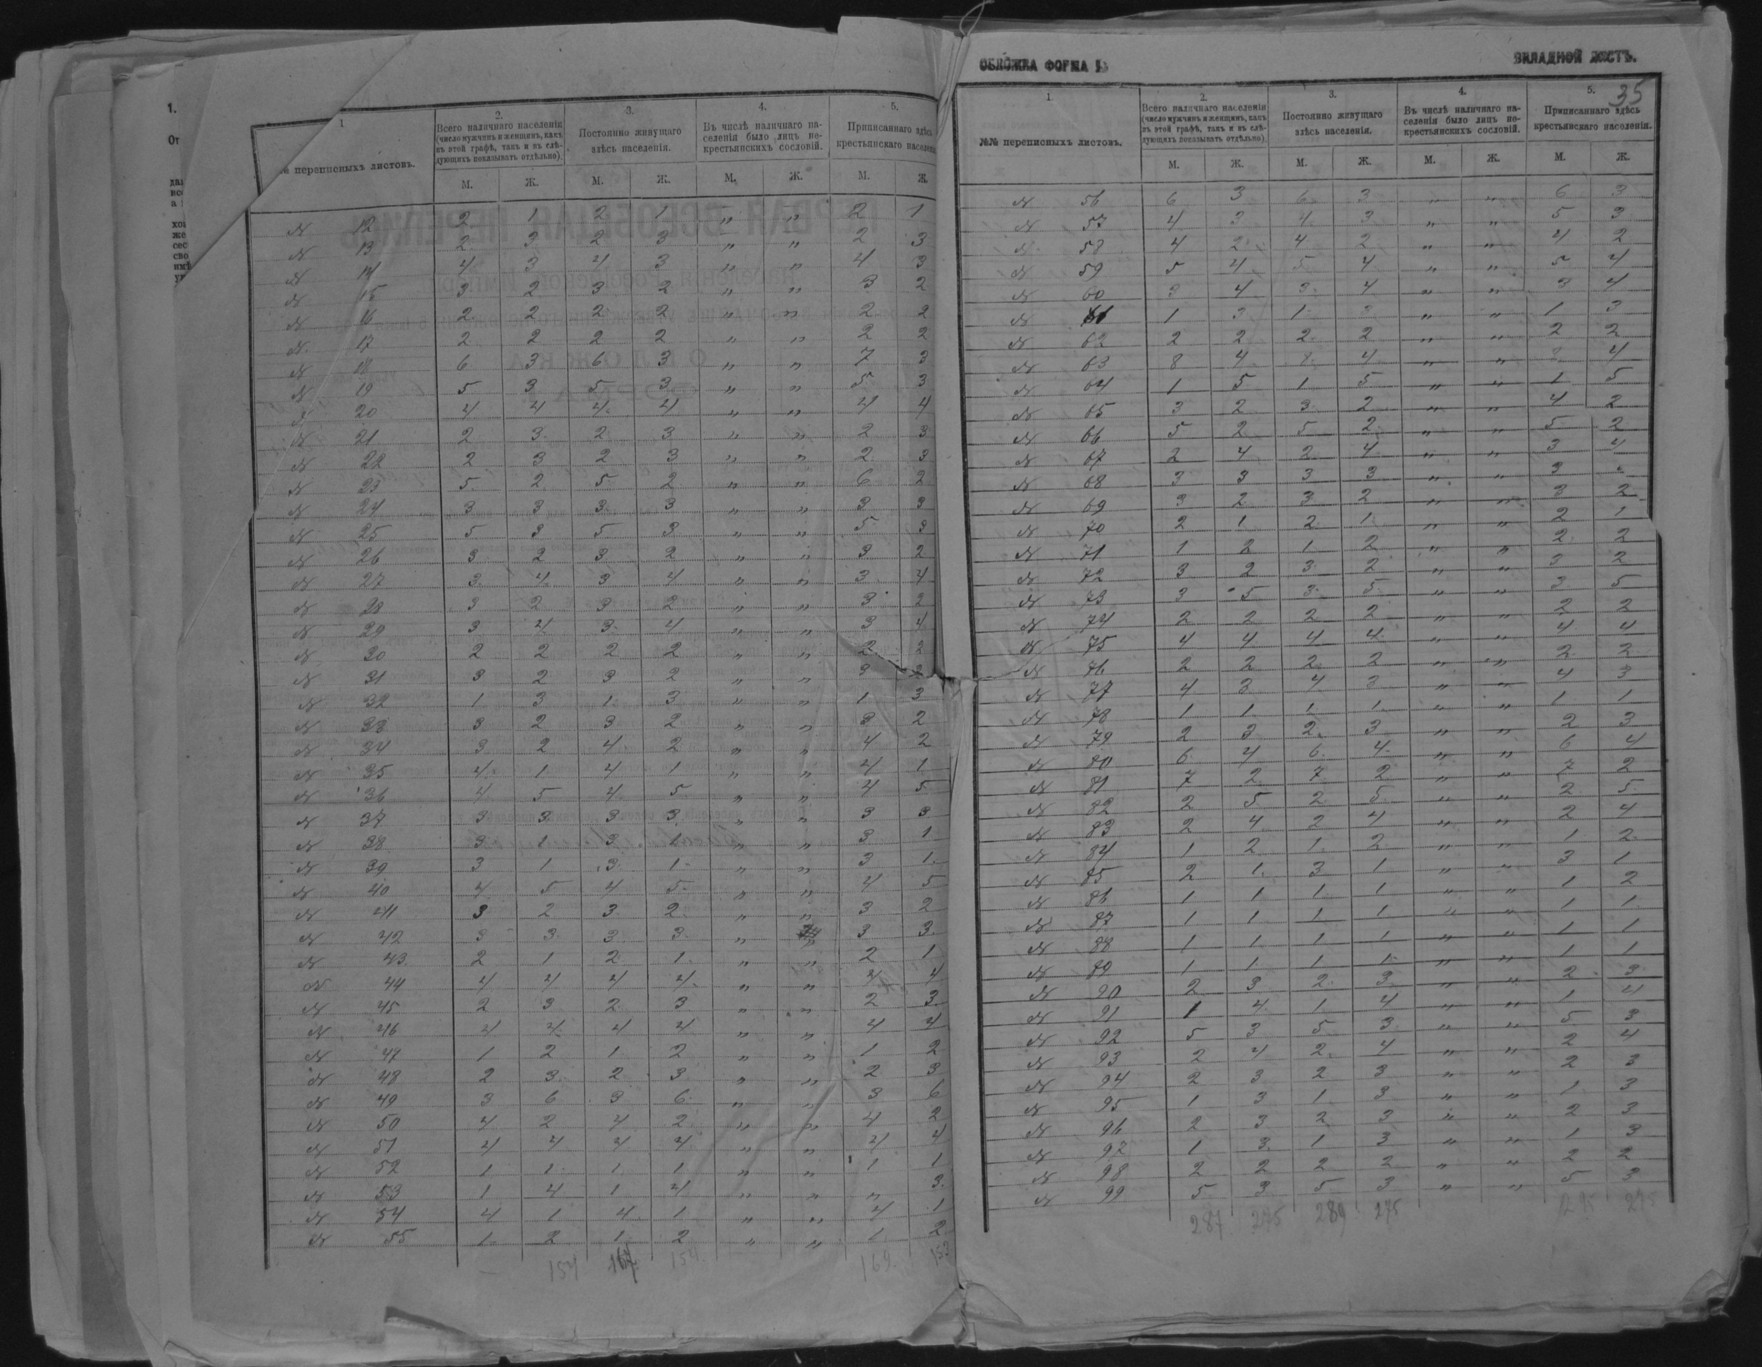 1.
От
1
№ переписныхъ листовъ.
2.
Всего наличнаго населенія (число мужчинъ и женщинъ, какъ въ этой графѣ, такъ и въ слѣдующихъ показывать отдѣльно).
3.
Постоянно живущаго здѣсь населенія.
4.
Въ числѣ наличнаго населенія было лицъ не-крестьянскихъ сословій.
5.
Приписаннаго здѣсь крестьянскаго населенія
М. Ж. М. Ж. М. Ж. М. Ж.
№ 12 2 1 2 1 „ „ 2 1
№ 13 2 3 2 3 „ „ 2 3
№ 14 4 3 4 3 „ „ 4 3
№ 15 3 2 3 2 „ „ 3 2
№ 16 2 2 2 2 „ „ 2 2
№ 17 2 2 2 2 „ „ 2 2
№ 18 6 3 6 3 „ „ 7 3
№ 19 5 3 5 3 „ „ 5 3
№ 20 4 4 4 4 „ „ 4 4
№ 21 2 3 2 3 „ „ 2 3
№ 22 2 3 2 3 „ „ 2 3
№ 23 5 2 5 2 „ „ 6 2
№ 24 3 3 3 3 „ „ 3 3
№ 25 5 3 5 3 „ „ 5 3
№ 26 3 2 3 2 „ „ 3 2
№ 27 3 4 3 4 „ „ 3 4
№ 28 3 2 3 2 „ „ 3 2
№ 29 3 4 3 4 „ „ 3 4
№ 30 2 2 2 2 „ „ 2 2
№ 31 3 2 3 2 „ „ 3 2
№ 32 1 3 1 3 „ „ 1 3
№ 33 3 2 3 2 „ „ 3 2
№ 34 3 2 4 2 „ „ 4 2
№ 35 4 1 4 1 „ „ 4 1
№ 36 4 5 4 5 „ „ 4 5
№ 37 3 3 3 3 „ „ 3 3
№ 38 3 1 3 1 „ „ 3 1
№ 39 3 1 3 1 „ „ 3 1
№ 40 4 5 4 5 „ „ 4 5
№ 41 3 2 3 2 „ „ 3 2
№ 42 3 3 3 3 „ „ 3 3
№ 43 2 1 2 1 „ „ 2 1
№ 44 4 4 4 4 „ „ 4 4
№ 45 2 3 2 3 „ „ 2 3
№ 46 4 4 4 4 „ „ 4 4
№ 47 1 2 1 2 „ „ 1 2
№ 48 2 3 2 3 „ „ 2 3
№ 49 3 6 3 6 „ „ 3 6
№ 50 4 2 4 2 „ „ 4 2
№ 51 4 4 4 4 „ „ 4 4
№ 52 1 1 1 1 „ „ 1 1
№ 53 1 4 1 4 „ „ „ 3
№ 54 4 1 4 1 „ „ 4 1
№ 55 1 2 1 2 „ „ 1 2
154 167 154 169 153
ОБЛОЖКА ФОРМА
ВКЛАДНОЙ ЛИСТЪ.
35
1.
№№ переписныхъ листовъ.
2.
Всего наличнаго населенія (число мужчинъ и женщинъ, какъ въ этой графѣ, такъ и въ слѣдующихъ показывать отдѣльно)
3.
Постоянно живущаго здѣсь населенія.
4.
Въ числѣ наличнаго населенія было лицъ не-крестьянскихъ сословій.
5.
Приписаннаго здѣсь крестьянскаго населенія.
М. Ж. М. Ж. М. Ж. М. Ж.
№ 56 6 3 6 3 „ „ 6 3
№ 57 4 3 4 3 „ „ 5 3
№ 58 4 2 4 2 „ „ 4 2
№ 59 5 4 5 4 „ „ 5 4
№ 60 3 4 3 4 „ „ 3 4
№ 61 1 3 1 3 „ „ 1 3
№ 62 2 2 2 2 „ „ 2 2
№ 63 8 4 8 4 „ „ 8 4
№ 64 1 5 1 5 „ „ 1 5
№ 65 3 2 3 2 „ „ 4 2
№ 66 5 2 5 2 „ „ 5 2
№ 67 2 4 2 4 „ „ 3 4
№ 68 3 3 3 3 „ „ 3
№ 69 3 2 3 2 „ „ 3 2
№ 70 2 1 2 1 „ „ 2 1
№ 71 1 2 1 2 „ „ 2 2
№ 72 3 2 3 2 „ „ 3 2
№ 73 3 5 3 5 „ „ 3 5
№ 74 2 2 2 2 „ „ 2 2
№ 75 4 4 4 4 „ „ 4 4
№ 76 2 2 2 2 „ „ 2 2
№ 77 4 3 4 3 „ „ 4 3
№ 78 1 1 1 1 „ „ 1 1
№ 79 2 3 2 3 „ „ 2 3
№ 80 6 4 6 4 „ „ 6 4
№ 81 7 2 7 2 „ „ 7 2
№ 82 2 5 2 5 „ „ 2 5
№ 83 2 4 2 4 „ „ 2 4
№ 84 1 2 1 2 „ „ 1 2
№ 85 2 1 3 1 „ „ 3 1
№ 86 1 1 1 1 „ „ 1 2
№ 87 1 1 1 1 „ „ 1 1
№ 88 1 1 1 1 „ „ 1 1
№ 89 1 1 1 1 „ „ 1 1
№ 90 2 3 2 3 „ „ 2 3
№ 91 1 4 1 4 „ „ 1 4
№ 92 5 3 5 3 „ „ 5 3
№ 93 2 4 2 4 „ „ 2 4
№ 94 2 3 2 3 „ „ 2 3
№ 95 1 3 1 3 „ „ 1 3
№ 96 2 3 2 3 „ „ 2 3
№ 97 1 3 1 3 „ „ 1 3
№ 98 2 2 2 2 „ „ 2 2
№ 99 5 3 5 3 „ „ 5 3
287 275 289 275 295 275